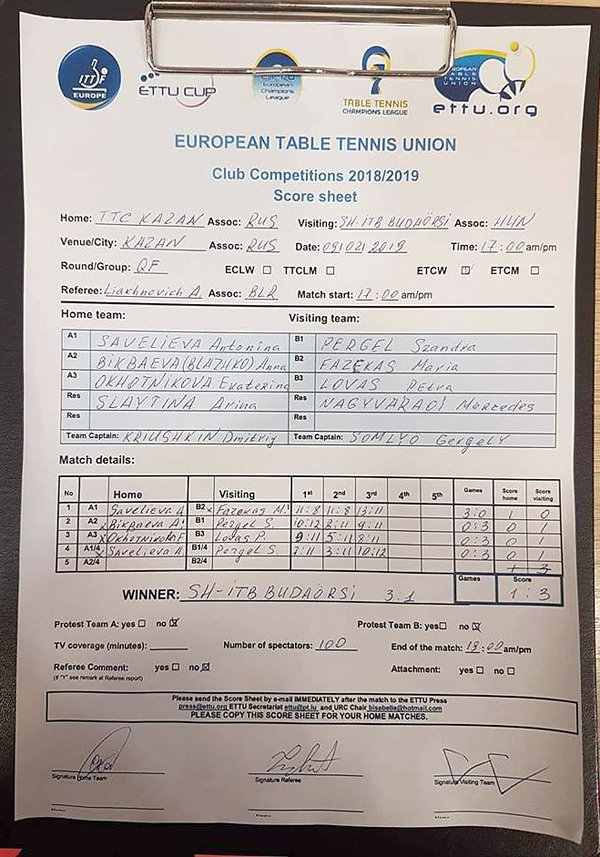 ITTF
EUROPE
ETTU CUP
ETTU
European
Champions
League
TABLE TENNIS
CHAMPIONS LEAGUE
EUROPEAN
TABLE
TENNIS
UNION
ettu.org
EUROPEAN TABLE TENNIS UNION
Club Competitions 2018/2019
Score sheet
Home: TTC KAZAN Assoc: RUS Visiting: SH-ITB BUDAÖRSI Assoc: HUN
Venue/City: KAZAN Assoc: RUS Date: 09|02|2019 Time: 17:00 am/pm
Round/Group: QF ECLW ☐ TTCLM ☐ ETCW ☑ ETCM ☐
Referee: Liakhnovich A. Assoc: BLR Match start: 17:00 am/pm
Home team: Visiting team:
A1 SAVELIEVA Antonina B1 PERGEL Szandra
A2 BIKBAEVA (BLAZHKO) Anna B2 FAZEKAS Maria
A3 OKHOTNIKOVA Ekaterina B3 LOVAS Petra
Res SLAYTINA Arina Res NAGYVARADI Merzedes
Res Res
Team Captain: KRIUSHKIN Dmitriy Team Captain: SOMLYO Gergely
Match details:
No Home Visiting 1st 2nd 3rd 4th 5th Games Score home Score visiting
1 A1 Savelieva A B2 x Fazekas M. 11:8 11:8 13:11 3:0 1 0
2 A2 x Bikbaeva A. B1 Pergel S. 10:12 8:11 9:11 0:3 0 1
3 A3 x Okhotnikova E B3 Lovas P. 9:11 5:11 8:11 0:3 0 1
4 A1/4 x Savelieva A B1/4 Pergel S 7:11 3:11 10:12 0:3 0 1
5 A2/4 B2/4 1 3
WINNER: SH-ITB BUDAÖRSI 3:1 Games Score 1:3
Protest Team A: yes ☐ no ☒ Protest Team B: yes ☐ no ☒
TV coverage (minutes): Number of spectators: 100 End of the match: 19:00 am/pm
Referee Comment: yes ☐ no ☒ Attachment: yes ☐ no ☐
(if "Y" see remark at Referee report)
Please send the Score Sheet by e-mail IMMEDIATELY after the match to the ETTU Press
press@ettu.org ETTU Secretariat ettu@pt.lu and URC Chair bisabelle@hotmail.com
PLEASE COPY THIS SCORE SHEET FOR YOUR HOME MATCHES.
Signature Home Team Signature Referee Signature Visiting Team